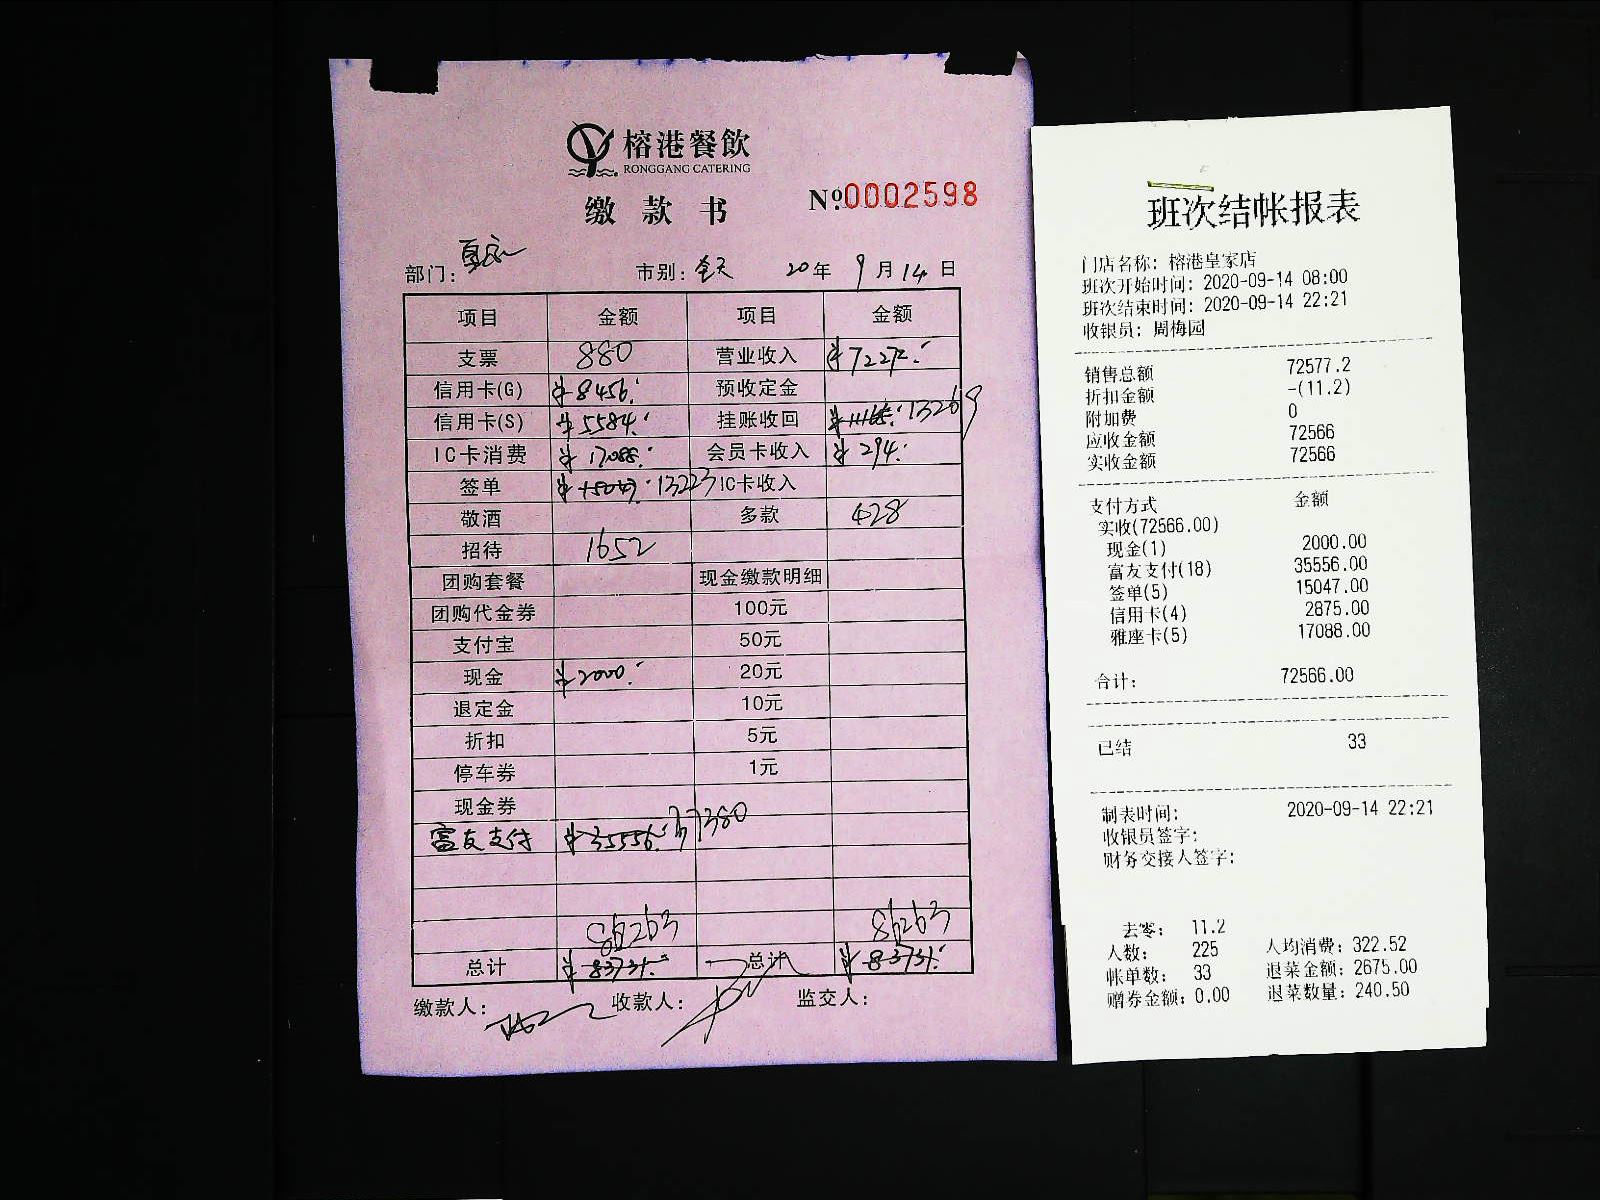 榕港餐飲
RONGGANG CATERING
缴款书
№0002598
部门: 市别: 全天 20年 9月14日
项目 金额 项目 金额
支票 880 营业收入 ¥72272.-
信用卡(G) ¥8456.- 预收定金
信用卡(S) ¥5584.- 挂账收回 13269
IC卡消费 ¥17088.- 会员卡收入 ¥294.-
签单 ¥15047.- 13223 IC卡收入
敬酒 多款 428
招待 1652
团购套餐 现金缴款明细
团购代金券 100元
支付宝 50元
现金 ¥2000.- 20元
退定金 10元
折扣 5元
停车券 1元
现金券
富友支付 ¥35556.- 37380
86263 86263
总计 ¥83731.- 总计 ¥83731.-
缴款人: 收款人: 监交人:
班次结帐报表
门店名称: 榕港皇家店
班次开始时间: 2020-09-14 08:00
班次结束时间: 2020-09-14 22:21
收银员: 周梅园
销售总额 72577.2
折扣金额 -(11.2)
附加费 0
应收金额 72566
实收金额 72566
支付方式 金额
实收(72566.00)
现金(1) 2000.00
富友支付(18) 35556.00
签单(5) 15047.00
信用卡(4) 2875.00
雅座卡(5) 17088.00
合计: 72566.00
已结 33
制表时间: 2020-09-14 22:21
收银员签字:
财务交接人签字:
去零: 11.2
人数: 225 人均消费: 322.52
帐单数: 33 退菜金额: 2675.00
赠券金额: 0.00 退菜数量: 240.50